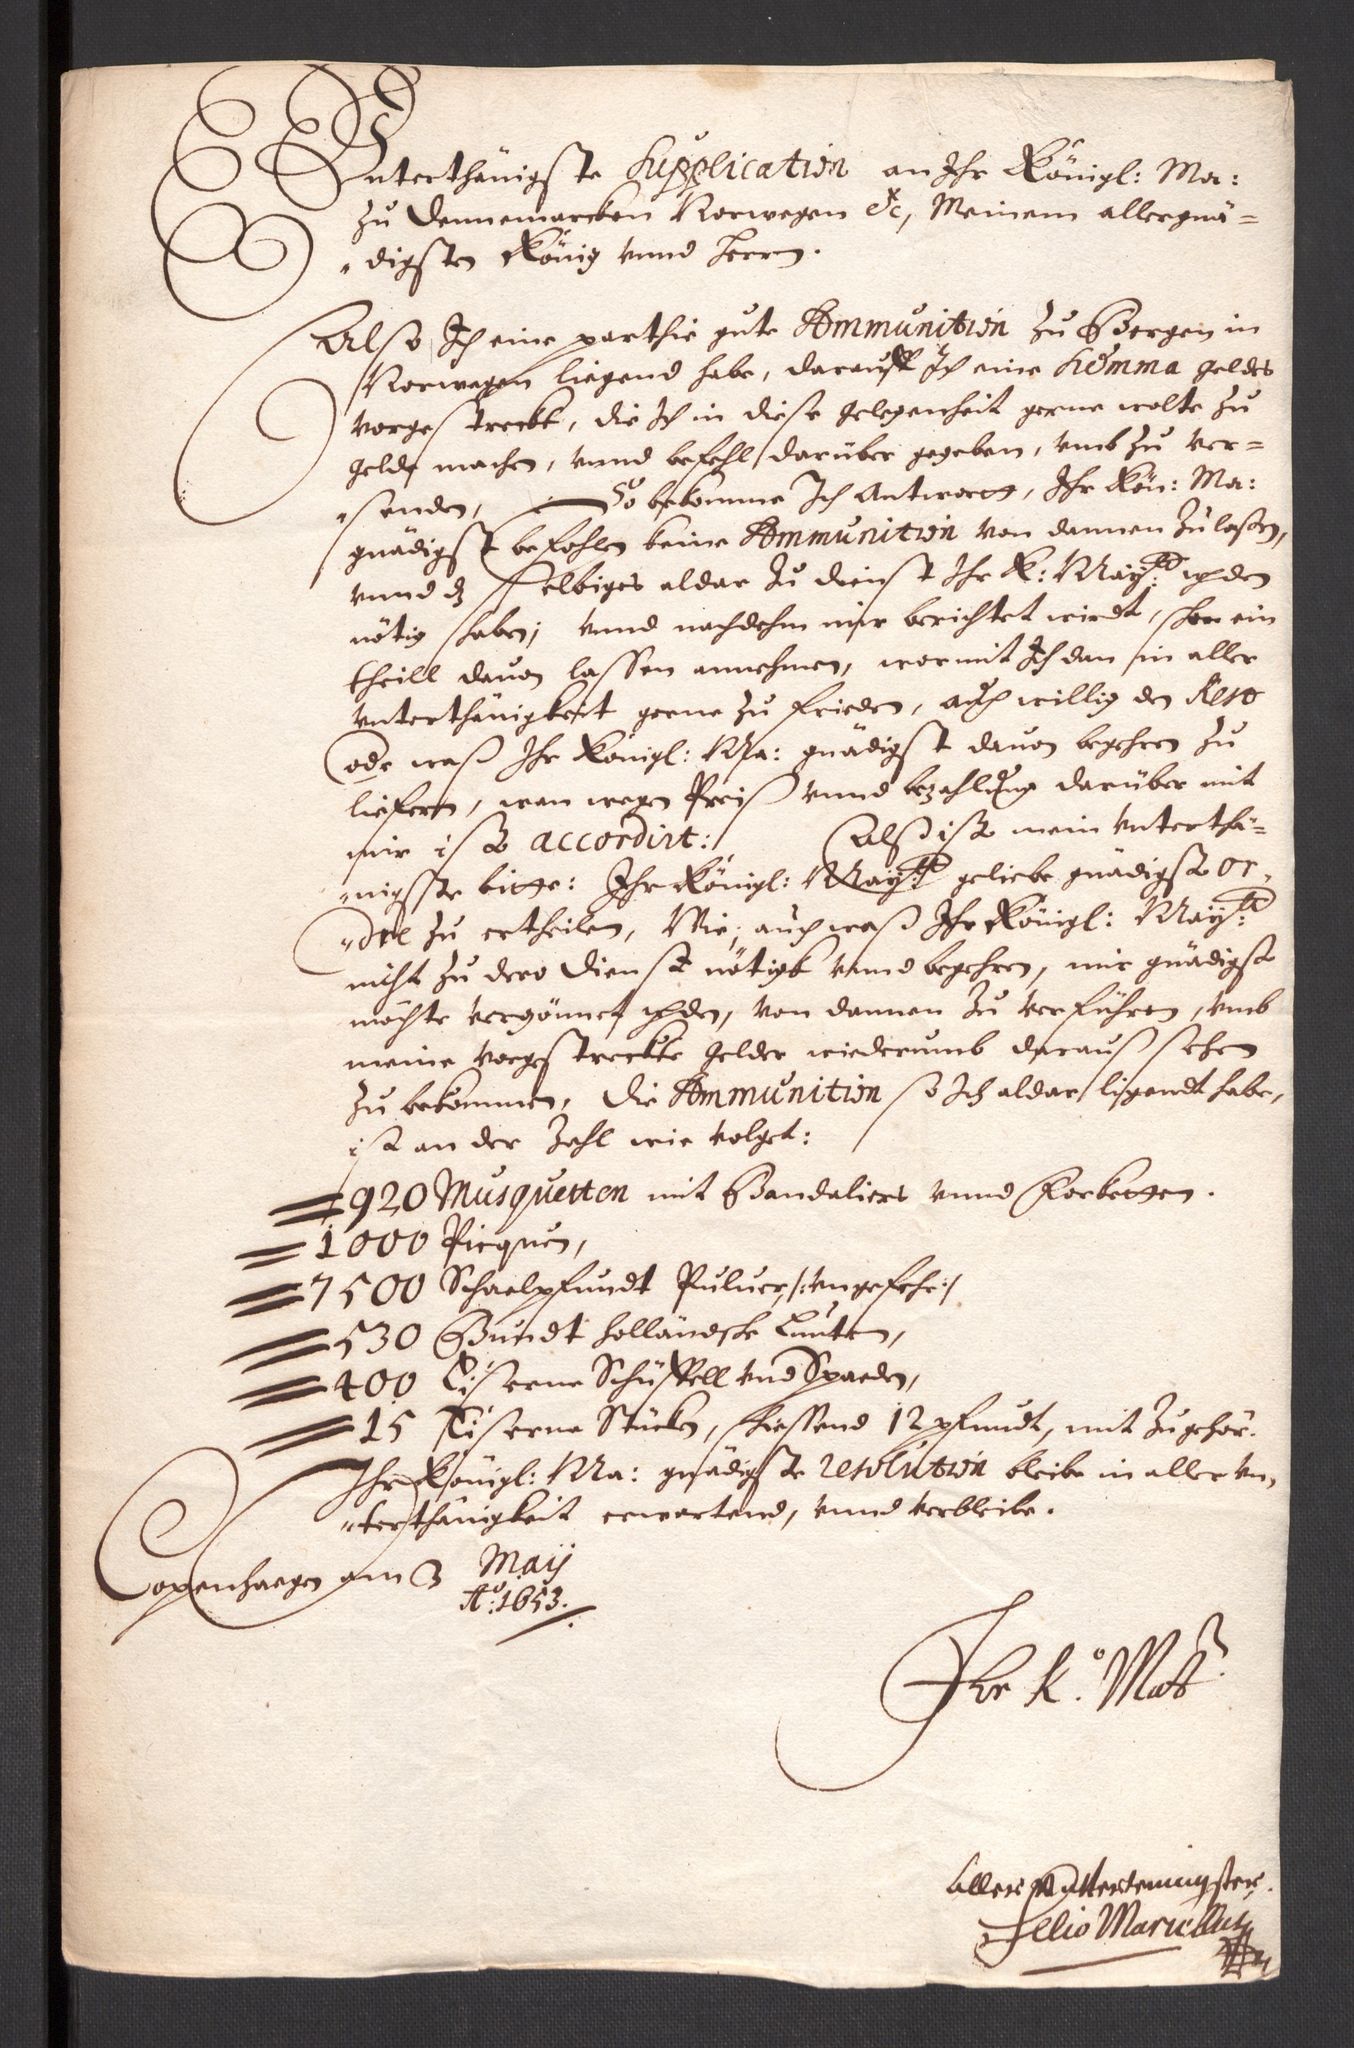 Unterthänigste Supplication an Ihr Königl: Ma:
zu Dennemarcken Norwegen &c, Meinem allergnä=
digsten König vnnd Herrn.
Alß Ich eine parthie gute Ammunition zu Bergen in
Norwegen liegend habe, darauff Ich eine Somma geldes
vorgestreckt, die Ich in diese gelegenheit gerne wolte zu
gelde machen, vnnd befehl darüber gegeben, vmb zu ver=
senden, So bekomme Ich Antwortt, Ihr Kön: Ma:
gnädigst befohlen keine Ammunition von dannen zu laßen,
vnnd dz selbiges aldar zu dienst Ihr K: Maytt: werden
nötig haben; vnnd nachdehm mir berichtet wirdt, schon ein
theill dauon lassen annehmen, wormit Ich dan in aller
vnterthänigkeit gerne zu frieden, auch willig den Rest
oder waß Ihr Königl: Ma: gnädigst dauon begehren zu
liefern, wan wegen Preiß vnnd bezahlung darüber mit
mir ist accordirt: Alß ist mein vnterthä=
nigste bitte: Ihr Königl: Maytt: geliebe gnädigst or=
dre zu ertheilen, Wie, auch waß Ihr Königl: Maytt:
nicht zu dero dienst nötigk vnnd begehren, mir gnädigst
möchte vergönnet werden, von dannen zu verführen, vmb
meine vorgestreckte gelder wiederumb darauß sehen
zu bekommen, die Ammunition so Ich aldar ligendt habe,
ist an der Zahl wie volget:
920 Musquetten mit Bandaliers vnnd Forketten.
1000 Picquen,
7500 Schaelpfundt Puluer, /: vngefehr :/
530 Bundt holländsche Lunten,
400 Eiserne Schüffell vnd Spaeden,
15 Eiserne Stücken, schiessend 12 pfundt, mit zugehör.
Ihr Königl: Ma: gnädigste resolution bleibe in aller vn=
terthänigkeit erwartend, vnnd verbleibe.
Copenhaegen am 3 Maij
Ao: 1653.
Ihr K. Matt
Aller Vntterteningster
Selio Marselius